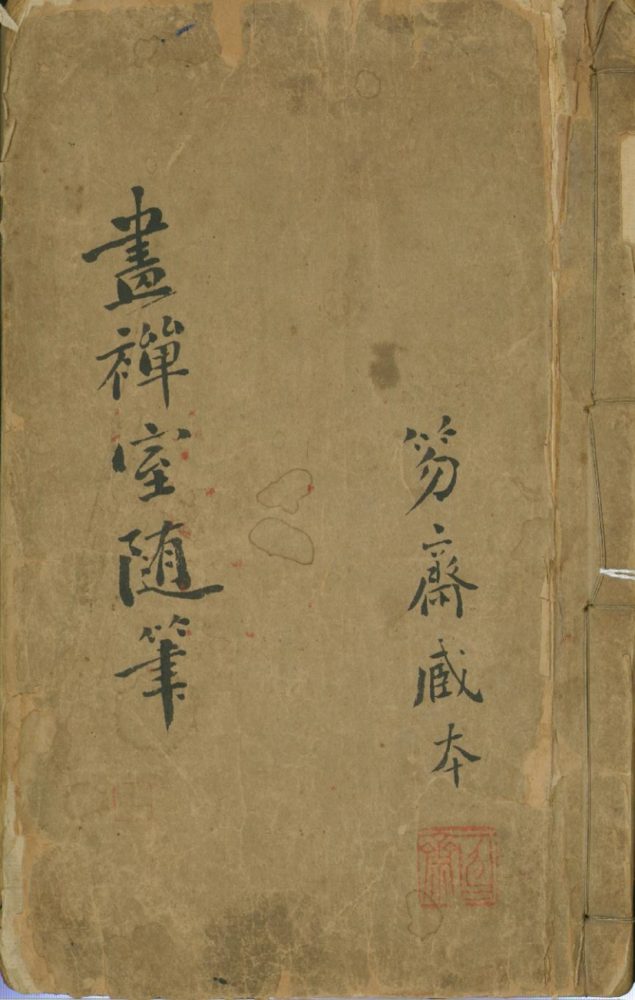 笏齋臧本
畫禪室随筆